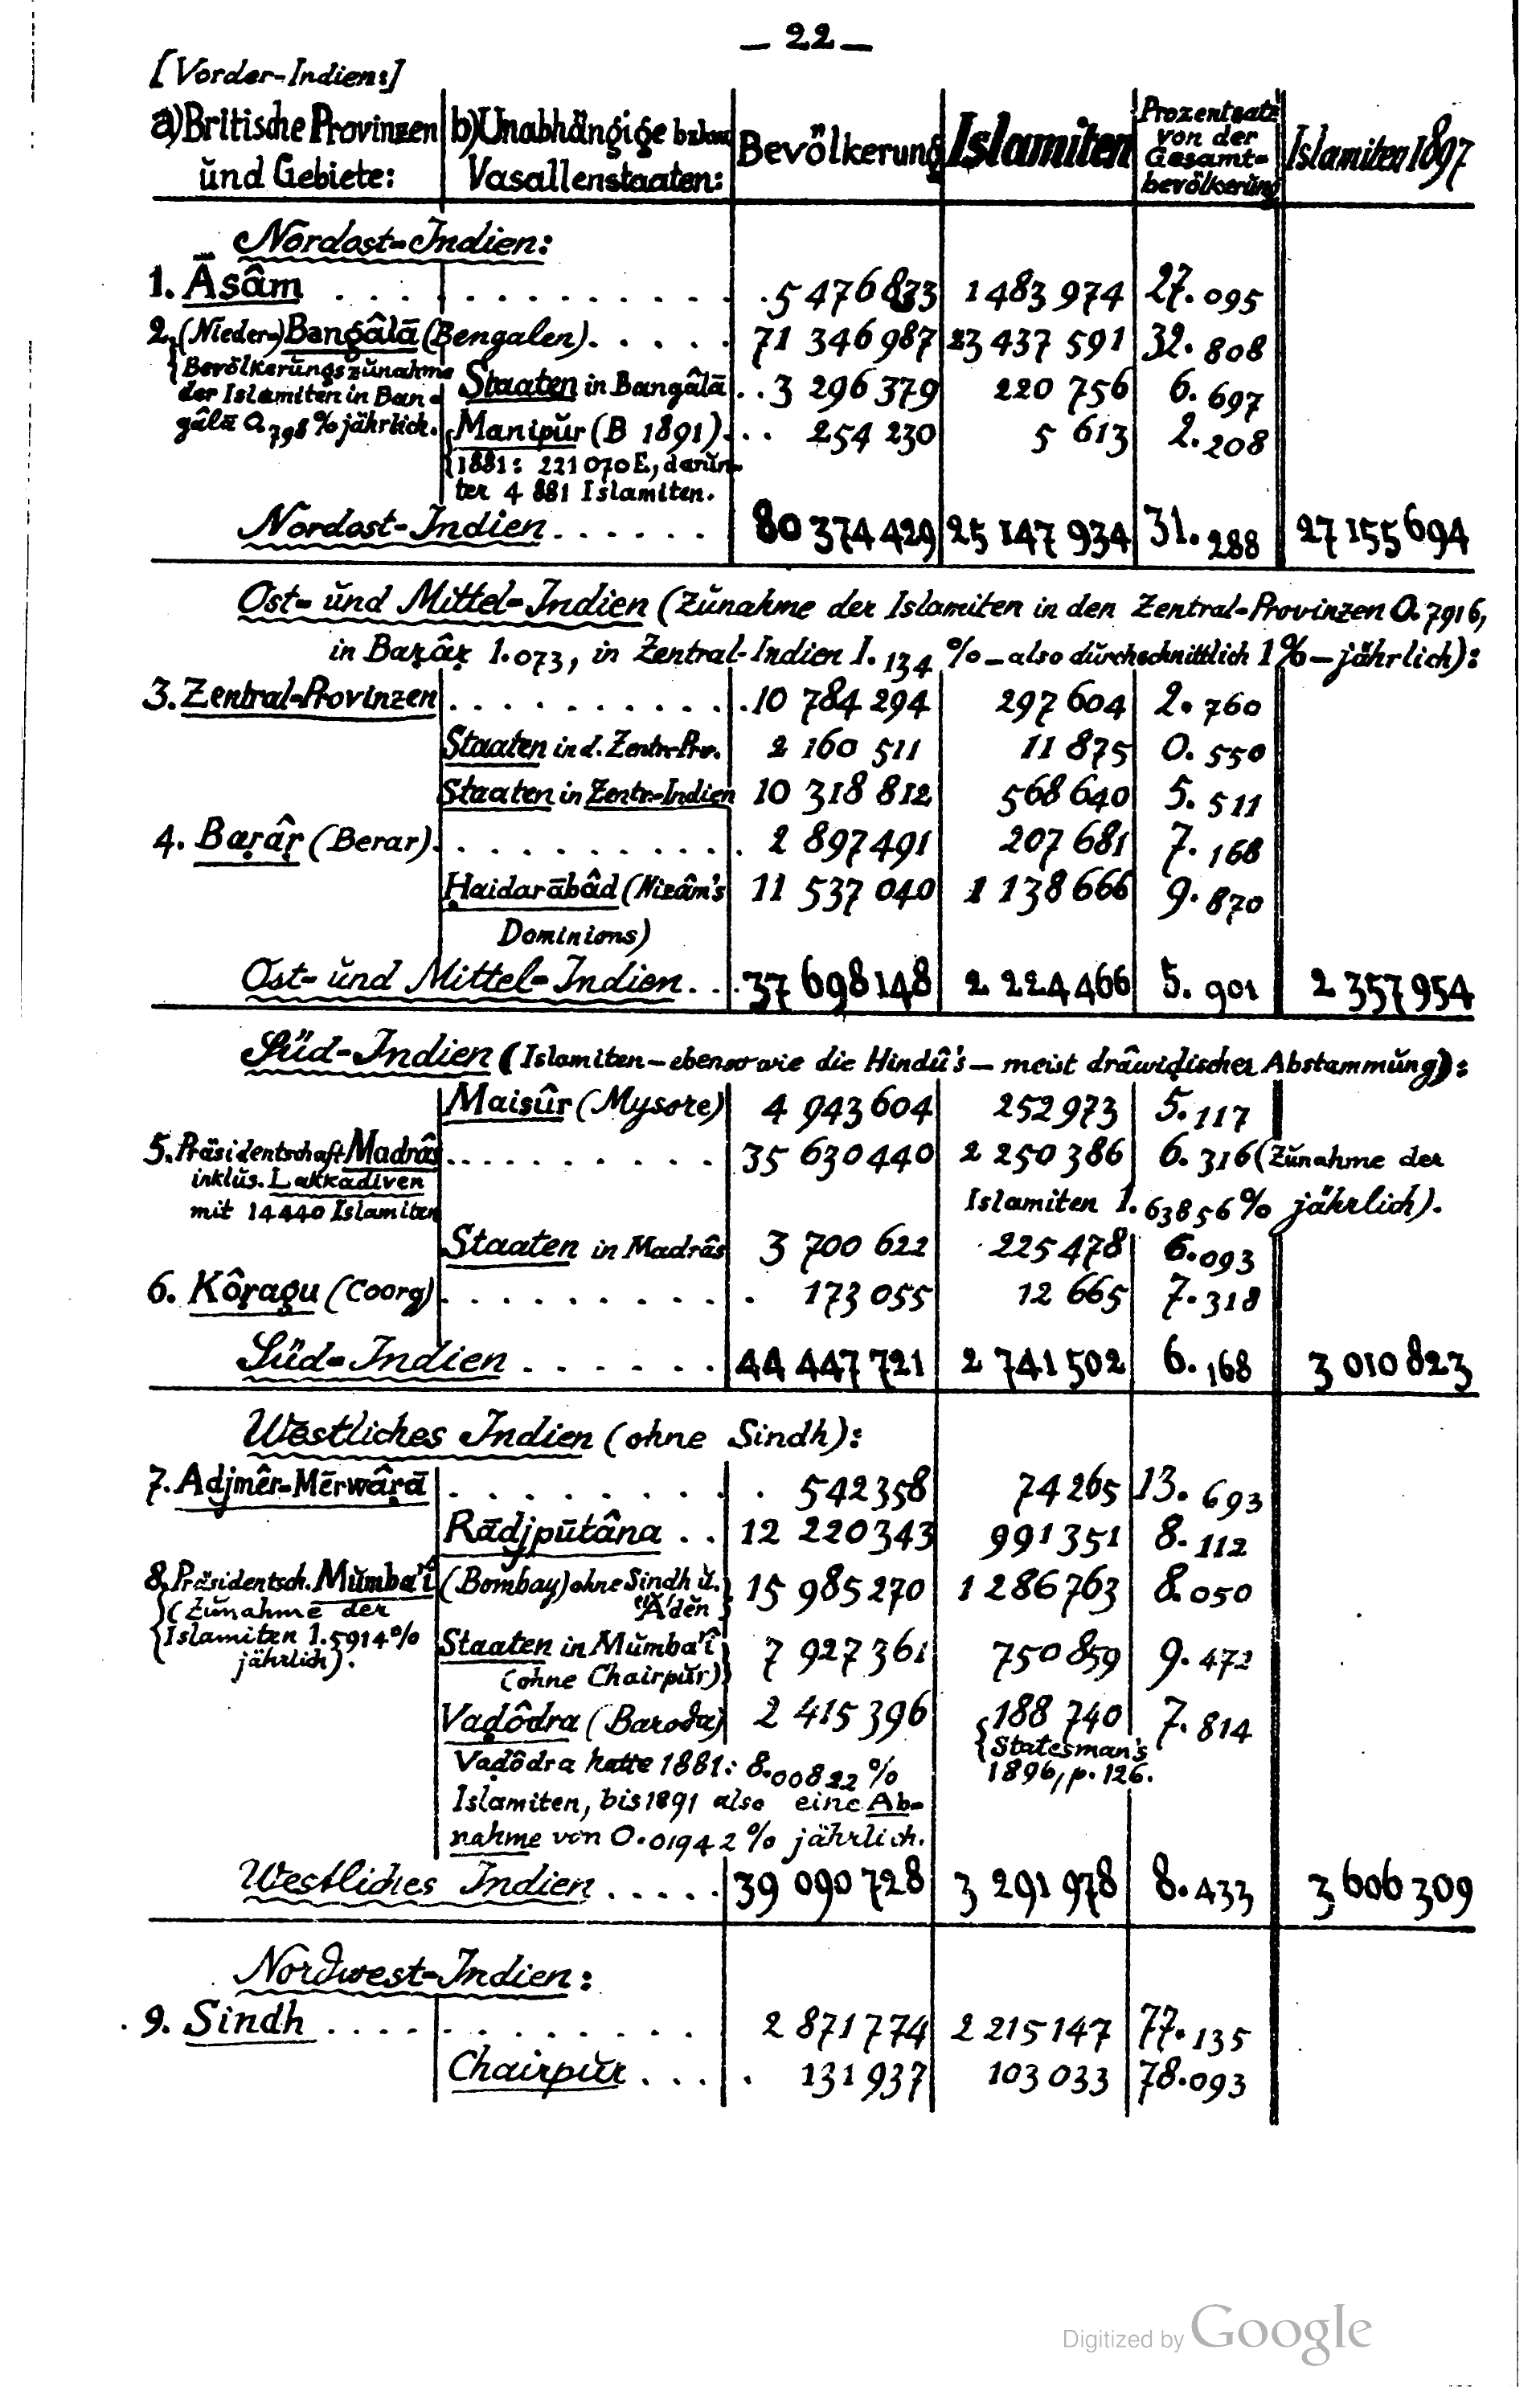 — 22 —
[Vorder-Indien:]
a) Britische Provinzen und Gebiete: b) Unabhängige bzhw. Vasallenstaaten: Bevölkerung Islamiten Prozentsatz von der Gesamt-bevölkerung Islamiten 1897
Nordost-Indien:
1. Āsâm . . . . . . . . . . . . . . 5 476 833 1 483 974 27.095
2. (Nieder-)Bangâlā (Bengalen) . . . . . 71 346 987 23 437 591 32.808
{Bevölkerŭngszŭnahme
der Islamiten in Ban-
gâlā 0.798 % jährlich.
Staaten in Bangâlā . . 3 296 379 220 756 6.697
Manipŭr (B 1891) . . . 254 230 5 613 2.208
{1881: 221 070 E., darŭn-
ter 4 881 Islamiten.
Nordost-Indien . . . . . . 80 374 429 25 147 934 31.288 27 155 694
Ost- ŭnd Mittel-Indien (Zŭnahme der Islamiten in den Zentral-Provinzen 0.7916,
in Baṛâṛ 1.073, in Zentral-Indien 1.134 % – also dŭrchschnittlich 1% – jährlich):
3. Zentral-Provinzen . . . . . . . . . . . 10 784 294 297 604 2.760
Staaten in d. Zentr.-Prov. 2 160 511 11 875 0.550
Staaten in Zentr.-Indien 10 318 812 568 640 5.511
4. Baṛâṛ (Berar) . . . . . . . . . . . 2 897 491 207 681 7.168
Ḥaidarābâd (Nizâm's 11 537 040 1 138 666 9.870
Dominions)
Ost- ŭnd Mittel-Indien . . . 37 698 148 2 224 466 5.901 2 357 954
Süd-Indien (Islamiten – ebenso wie die Hindû's – meist drâwiḍischer Abstammŭng):
Maisûr (Mysore) 4 943 604 252 973 5.117
5. Präsidentschaft Madrâs . . . . . . . . . 35 630 440 2 250 386 6.316 (Zŭnahme der
inklŭs. Lakkadiven
mit 14 440 Islamiten
Islamiten 1.63856 % jährlich).
Staaten in Madrâs 3 700 622 225 478 6.093
6. Kôṛagu (Coorg) . . . . . . . . . . . 173 055 12 665 7.318
Süd-Indien . . . . . . 44 447 721 2 741 502 6.168 3 010 823
Westliches Indien (ohne Sindh):
7. Adjmêr-Mērwâṛā . . . . . . . . . 542 358 74 265 13.693
Rādjpūtâna . . 12 220 343 991 351 8.112
8. Präsidentsch. Mŭmba'î (Bombay) ohne Sindh ŭ. 'Aden 15 985 270 1 286 763 8.050
{(Zŭnahme der
Islamiten 1.5914 %
jährlich).
Staaten in Mŭmba'î 7 927 361 750 859 9.472
(ohne Chairpŭr)
Vaḍôdra (Baroda) 2 415 396 188 740 7.814
{Statesman's
1896, p. 126.
Vaḍôdra hatte 1881: 8.00822 %
Islamiten, bis 1891 also eine Ab-
nahme von 0.01942 % jährlich.
Westliches Indien . . . . . 39 090 728 3 291 978 8.433 3 606 309
Nordwest-Indien:
9. Sindh . . . . . . . . . . . 2 871 774 2 215 147 77.135
Chairpŭr . . . . 131 937 103 033 78.093
Digitized by Google